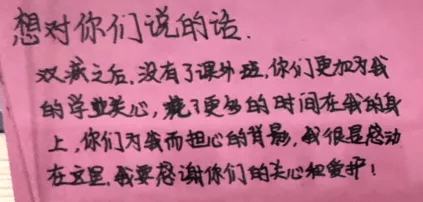 想对你们说的话.
双减之后,没有了课外班,你们更加为我
的学业关心,花了更多的时间在我的身
上,你们为我而担心的背影,我很是感动
在这里,我要感谢你们的关心和爱护!